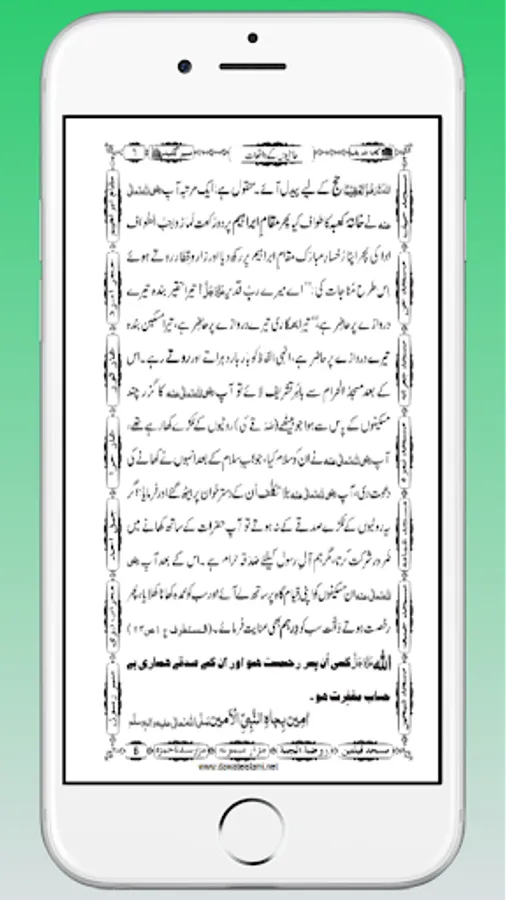 حاجیوں کے واقعات ٦
حج کے لیے پیدل آئے۔ منقول ہے: ایک مرتبہ آپ رضی اللہ تعالیٰ
عنہ نے خانۂ کعبہ کا طواف کیا پھر مقامِ ابراہیم پر دو رکعت نمازِ واجبُ الطواف
ادا کی پھر اپنا رُخسارِ مبارک مقامِ ابراہیم پر رکھ دیا اور زار و قطار روتے ہوئے
اس طرح مُناجات کی: ''اے میرے ربِّ قدیر! تیرا حقیر بندہ تیرے
دروازے پر حاضر ہے، تیرا بھکاری تیرے دروازے پر حاضر ہے، تیرا مسکین بندہ
تیرے دروازے پر حاضر ہے، انہی الفاظ کو بار بار دہراتے اور روتے رہے۔ اس
کے بعد مسجدُ الحرام سے باہر تشریف لائے تو آپ رضی اللہ تعالیٰ عنہ کا گزر چند
مسکینوں کے پاس سے ہوا جو بیٹھے (صَدَقے کی) روٹیوں کے ٹکڑے کھا رہے تھے،
آپ رضی اللہ تعالیٰ عنہ نے ان کو سلام کیا، جوابِ سلام کے بعد انہوں نے کھانے کی
دعوت دی، آپ رضی اللہ تعالیٰ عنہ بِلا تکلُّف اُن کے دسترخوان پر بیٹھ گئے اور فرمایا: اگر
یہ روٹیوں کے ٹکڑے صدقے کے نہ ہوتے تو آپ حضرات کے ساتھ کھانے میں
ضَرور شرکت کرتا، مگر ہم آلِ رسول کیلئے صَدَقہ حرام ہے۔ اس کے بعد آپ رضی
اللہ تعالیٰ عنہ ان مسکینوں کو اپنی قیام گاہ پر ساتھ لے آئے اور سب کو عُمدہ کھانا کھلایا، پھر
رخصت ہوتے وَقت سب کو دِرہم بھی عنایت فرمائے۔ (المستطرف ج ۱ ص ۲۳)
اللہ عزوجل کی اُن پر رحمت ہو اور ان کے صدقے ہماری بے
حساب مغفِرت ہو۔
اٰمِین بِجاہِ النَّبِیِّ الْاَمین صلی اللہ تعالیٰ علیہ واٰلہٖ وسلم
مسجد قبلتین روضۃ الجنۃ مزار میمونہ مزار سیدنا حمزہ 6
www.dawateislami.net